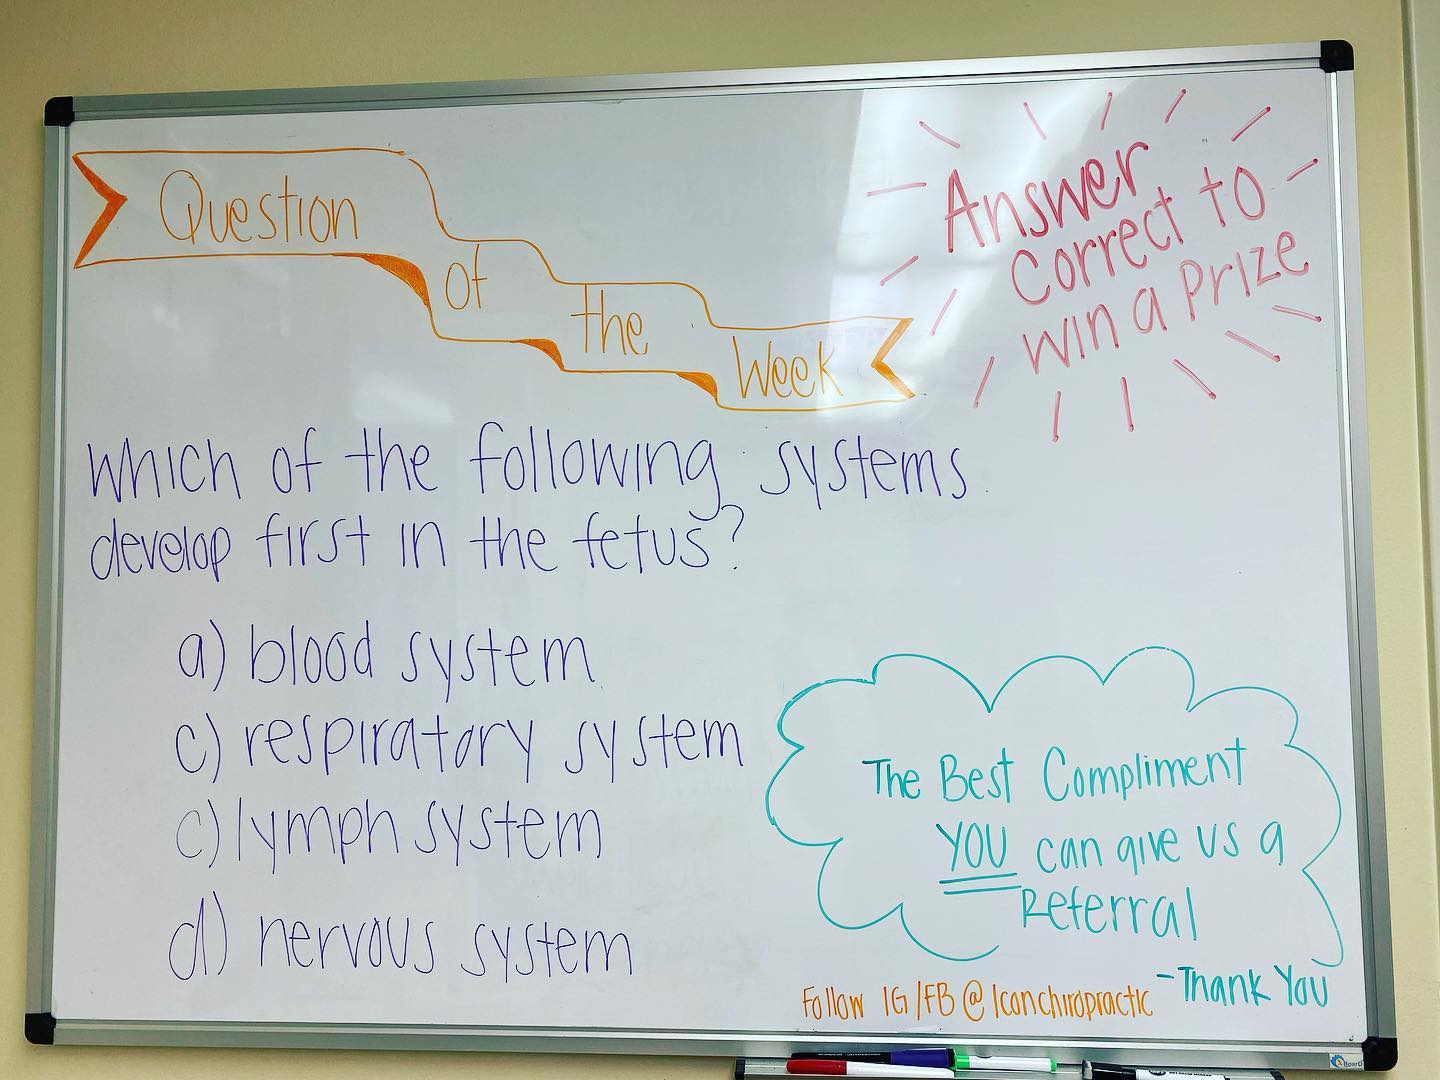 Question
of
the
Week
Answer
Correct to
win a Prize
Which of the following systems
develop first in the fetus?
a) blood system
c) respiratory system
c) lymph system
d) nervous system
The Best Compliment
YOU can give us a
Referral
-Thank You
Follow IG/FB @ Iconchiropractic